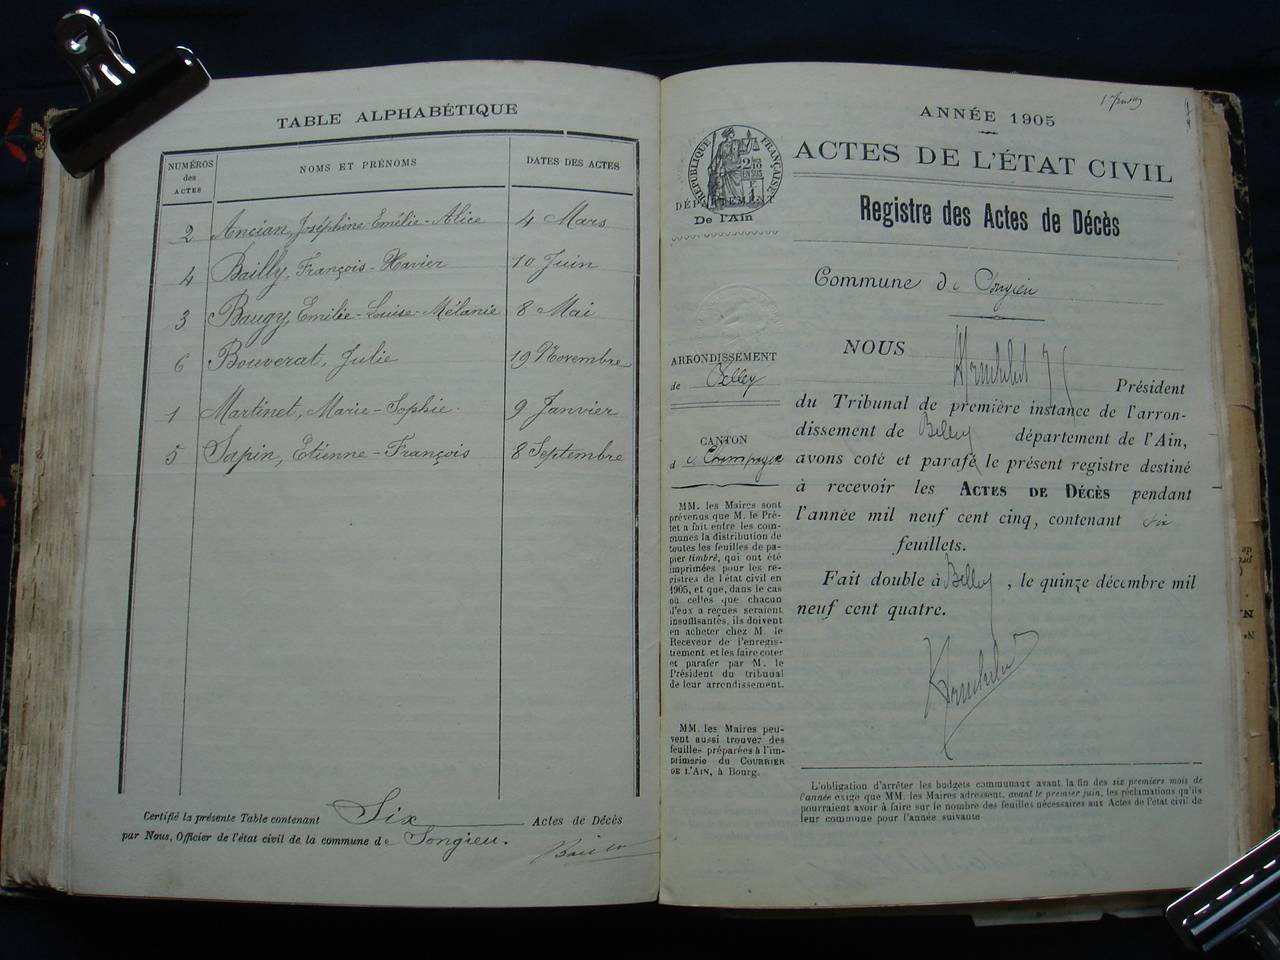 TABLE ALPHABÉTIQUE
NUMÉROS des ACTES
NOMS ET PRÉNOMS
DATES DES ACTES
2 Ancian, Joséphine-Emélie-Alice 4 Mars
4 Bailly, François-Xavier 10 Juin
3 Baugy, Emilie-Louise-Mélanie 8 Mai
6 Bouverat, Julie 19 Novembre
1 Martinet, Marie-Sophie. 9 Janvier
5 Sapin, Etienne-François 8 Septembre
Certifié la présente Table contenant Six Actes de Décès
par Nous, Officier de l'état civil de la commune de Songieu.
ANNÉE 1905
ACTES DE L'ÉTAT CIVIL
Registre des Actes de Décès
RÉPUBLIQUE FRANÇAISE
DÉPARTEMENT
De l'Ain
Commune de Songieu
ARRONDISSEMENT
de Belley
CANTON
de Champagne
MM. les Maires sont
prévenus que M. le Pré-
fet a fait entre les com-
munes la distribution de
toutes les feuilles de pa-
pier timbré, qui ont été
imprimées pour les re-
gistres de l'état civil en
1905, et que, dans le cas
où celles que chacun
d'eux a reçues seraient
insuffisantes, ils doivent
en acheter chez M. le
Receveur de l'enregis-
trement et les faire coter
et parafer par M. le
Président du tribunal
de leur arrondissement.
MM. les Maires peu-
vent aussi trouver des
feuilles préparées à l'im-
primerie du COURRIER
DE L'AIN, à Bourg.
NOUS
Président
du Tribunal de première instance de l'arron-
dissement de Belley département de l'Ain,
avons coté et parafé le présent registre destiné
à recevoir les ACTES DE DÉCÈS pendant
l'année mil neuf cent cinq, contenant six
feuillets.
Fait double à Belley, le quinze décembre mil
neuf cent quatre.
L'obligation d'arrêter les budgets communaux avant la fin des six premiers mois de
l'année exige que MM. les Maires adressent, avant le premier juin, les réclamations qu'ils
pourraient avoir à faire sur le nombre des feuilles nécessaires aux Actes de l'état civil de
leur commune pour l'année suivante